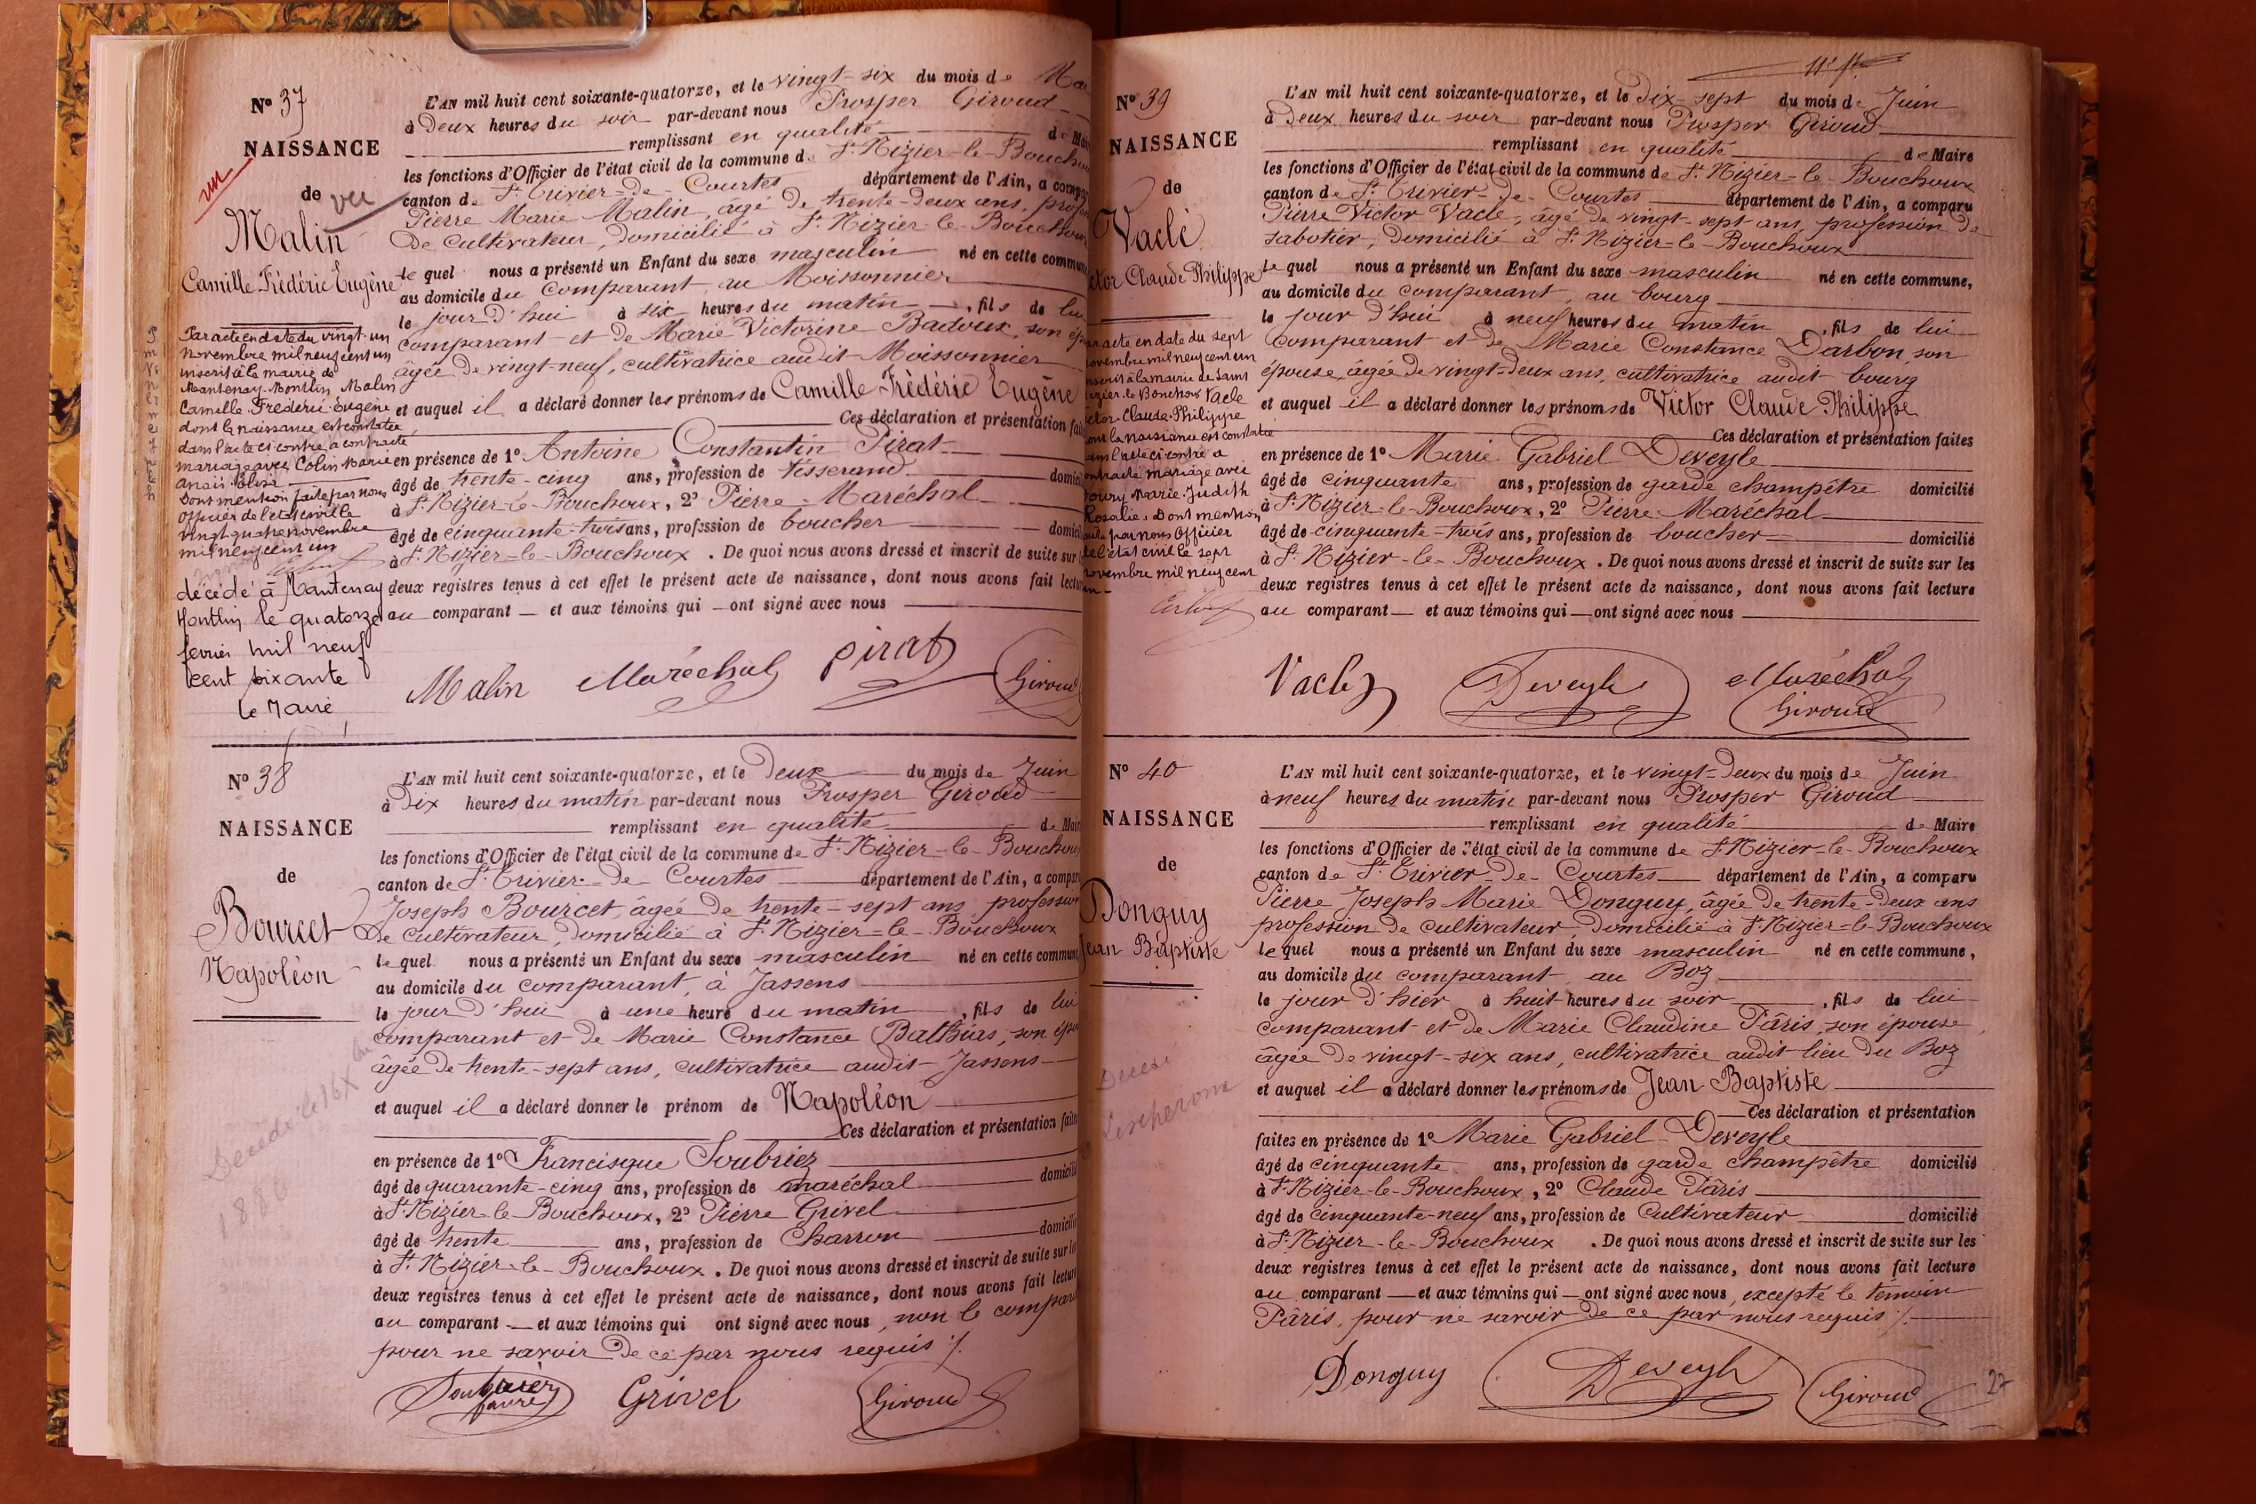 N° 37
NAISSANCE
de
vu
Malin
Camille Frédéric Eugène
Par acte en date du vingt-un
novembre mil neuf cent un
inscrit à la mairie de
Mantenay-Montlin Malin
Camille Frédéric Eugène
dont la naissance est constatée
dans l'acte ci contre a contracté
mariage avec Colin Marie
Anaïs Elisa
Dont mention faite par nous
officier de l'état civil le
vingt quatre novembre
mil neuf cent un
décédé à Mantenay
Montlin le quatorze
février mil neuf
cent soixante
le Maire
L'AN mil huit cent soixante-quatorze, et le vingt-six du mois de Mai
à Deux heures du soir par-devant nous Prosper Giroud
remplissant en qualité de Maire
les fonctions d'Officier de l'état civil de la commune de St Nizier-le-Bouchoux
canton de St Trivier-de-Courtes département de l'Ain, a comparu
Pierre Marie Malin, âgé de trente-deux ans, profession
de cultivateur, domicilié à St Nizier-le-Bouchoux
le quel nous a présenté un Enfant du sexe masculin né en cette commune
au domicile du comparant, au Moissonnier
le jour d'hui à six heures du matin, fils de lui
comparant et de Marie Victorine Badoux, son épouse
âgée de vingt-neuf, cultivatrice audit Moissonnier
et auquel il a déclaré donner les prénoms de Camille Frédéric Eugène
Ces déclaration et présentation faites
en présence de 1° Antoine Constantin Pirat
âgé de trente-cinq ans, profession de tisserand domicilié
à St Nizier-le-Bouchoux, 2° Pierre Maréchal
âgé de cinquante-trois ans, profession de boucher domicilié
à St Nizier-le-Bouchoux. De quoi nous avons dressé et inscrit de suite sur les
deux registres tenus à cet effet le présent acte de naissance, dont nous avons fait lecture
au comparant — et aux témoins qui — ont signé avec nous
Malin Maréchal Pirat Giroud
N° 38
NAISSANCE
de
Bourcet
Napoléon
L'AN mil huit cent soixante-quatorze, et le Deux du mois de Juin
à Dix heures du matin par-devant nous Prosper Giroud
remplissant en qualité de Maire
les fonctions d'Officier de l'état civil de la commune de St Nizier-le-Bouchoux
canton de St Trivier-de-Courtes département de l'Ain, a comparu
Joseph Bourcet, âgée de trente-sept ans, profession
de cultivateur, domicilié à St Nizier-le-Bouchoux
le quel nous a présenté un Enfant du sexe masculin né en cette commune
au domicile du comparant, à Jassens
le jour d'hui à une heure du matin, fils de lui
comparant et de Marie Constance Balthias, son épouse
âgée de trente-sept ans, cultivatrice audit Jassens
et auquel il a déclaré donner le prénom de Napoléon
Ces déclaration et présentation faites
en présence de 1° Francisque Soubriez
âgé de quarante-cinq ans, profession de maréchal domicilié
à St Nizier-le-Bouchoux, 2° Pierre Grivel
âgé de trente ans, profession de Charron domicilié
à St Nizier-le-Bouchoux. De quoi nous avons dressé et inscrit de suite sur les
deux registres tenus à cet effet le présent acte de naissance, dont nous avons fait lecture
au comparant — et aux témoins qui ont signé avec nous, non le comparant
pour ne savoir de ce par nous requis ./.
Grivel Giroud
N° 39
NAISSANCE
de
Vaclé
Victor Claude Philippe
Par acte en date du sept
novembre mil neuf cent un
inscrit à la mairie de Saint
Nizier-le-Bouchoux Vacle
Victor-Claude-Philippe
dont la naissance est constatée
dans l'acte ci contre a
contracté mariage avec
Marie Judith
Rosalie. Dont mention
faite par nous Officier
de l'état civil le sept
novembre mil neuf cent
un
L'AN mil huit cent soixante-quatorze, et le dix-sept du mois de Juin
à Deux heures du soir par-devant nous Prosper Giroud
remplissant en qualité de Maire
les fonctions d'Officier de l'état civil de la commune de St Nizier-le-Bouchoux
canton de St Trivier-de-Courtes département de l'Ain, a comparu
Pierre Victor Vaclé, âgé de vingt-sept ans, profession de
sabotier, domicilié à St Nizier-le-Bouchoux
le quel nous a présenté un Enfant du sexe masculin né en cette commune,
au domicile du comparant, au bourg
le jour d'hui à neuf heures du matin, fils de lui
comparant et de Marie Constance Darbon son
épouse, âgée de vingt-deux ans, cultivatrice audit bourg
et auquel il a déclaré donner les prénoms de Victor Claude Philippe
Ces déclaration et présentation faites
en présence de 1° Marie Gabriel Deveyle
âgé de cinquante ans, profession de garde champêtre domicilié
à St Nizier-le-Bouchoux, 2° Pierre Maréchal
âgé de cinquante-trois ans, profession de boucher domicilié
à St Nizier-le-Bouchoux. De quoi nous avons dressé et inscrit de suite sur les
deux registres tenus à cet effet le présent acte de naissance, dont nous avons fait lecture
au comparant — et aux témoins qui — ont signé avec nous
Vaclé Deveyle Maréchal
Giroud
N° 40
NAISSANCE
de
Donguy
Jean Baptiste
L'AN mil huit cent soixante-quatorze, et le vingt-deux du mois de Juin
à neuf heures du matin par-devant nous Prosper Giroud
remplissant en qualité de Maire
les fonctions d'Officier de l'état civil de la commune de St Nizier-le-Bouchoux
canton de St Trivier-de-Courtes département de l'Ain, a comparu
Pierre Joseph Marie Donguy, âgée de trente-deux ans
profession de cultivateur, domicilié à St Nizier-le-Bouchoux
le quel nous a présenté un Enfant du sexe masculin né en cette commune,
au domicile du comparant au Boz
le jour d'hier à huit heures du soir, fils de lui
comparant et de Marie Claudine Pâris, son épouse,
âgée de vingt-six ans, cultivatrice audit lieu du Boz
et auquel il a déclaré donner les prénoms de Jean Baptiste
Ces déclaration et présentation
faites en présence de 1° Marie Gabriel Deveyle
âgé de cinquante ans, profession de garde champêtre domicilié
à St Nizier-le-Bouchoux, 2° Claude Pâris
âgé de cinquante-neuf ans, profession de Cultivateur domicilié
à St Nizier-le-Bouchoux. De quoi nous avons dressé et inscrit de suite sur les
deux registres tenus à cet effet le présent acte de naissance, dont nous avons fait lecture
au comparant — et aux témoins qui — ont signé avec nous, excepté le témoin
Pâris, pour ne savoir de ce par nous requis ./.
Donguy Deveyle Giroud
27